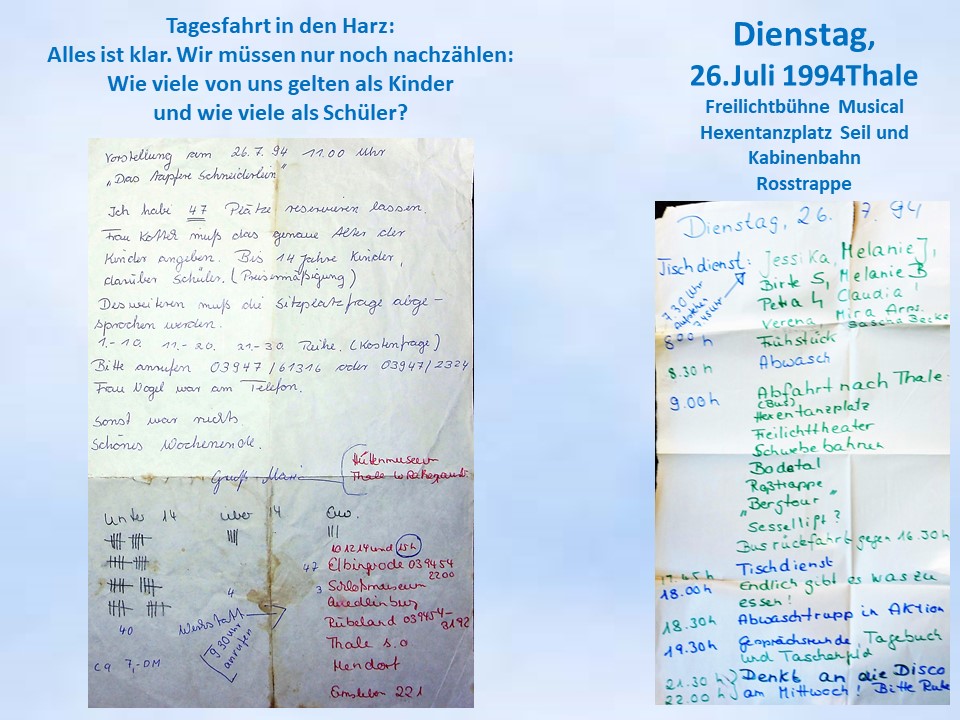 Tagesfahrt in den Harz:
Alles ist klar. Wir müssen nur noch nachzählen:
Wie viele von uns gelten als Kinder
und wie viele als Schüler?
Vorstellung am 26.7.94 11.00 Uhr
„Das Tapfere Schneiderlein"
Ich habe 47 Plätze reservieren lassen.
Frau muß das genaue Alter der
Kinder angeben. Bis 14 Jahre Kinder,
darüber Schüler. (Preisermäßigung)
Des weiteren muß die Sitzplatzfrage abge-
sprochen werden.
1.-10. 11.-20. 21.-30. Reihe. (Kostenfrage)
Bitte anrufen 03947/61316 oder 03947/2324
Frau Nagel war am Telefon.
Sonst war nichts
Schönes Wochenende.
Gruß
Hüttenmuseum
Thale
unter 14 über 14 Erw.
10 12 14 und 15h
47 Elbingerode 039454
2200
3 Schloßmuseum
Quedlinburg
4
Rübeland 039454-
3192
40
Werkstatt
9.30 Uhr
anrufen
Thale s.o
ca 7,-DM
221
Dienstag,
26.Juli 1994Thale
Freilichtbühne Musical
Hexentanzplatz Seil und
Kabinenbahn
Rosstrappe
Dienstag, 26. 7. 94
Tischdienst: Jessika, Melanie J,
Birte S, Melanie B
Petra L, Claudia
Verena, Mira Arns.
Sascha Becke
7.30 Uhr
aufstehen
7.45 Uhr
8.00 h Frühstück
8.30 h Abwasch
9.00h Abfahrt nach Thale
(Bus)
Hexentanzplatz
Freilichttheater
Schwebebahnen
Bodetal
Roßtrappe
„Bergtour"
Sessellift?
Busrückfahrt gegen 16.30h
17.45h Tischdienst
18.00h Endlich gibt es was zu
essen!
18.30h Abwaschtrupp in Aktion
19.30h Gesprächsrunde, Tagebuch
und Taschengeld
21.30 h Denkt an die Disco
22.00 h am Mittwoch! Bitte Ruhe